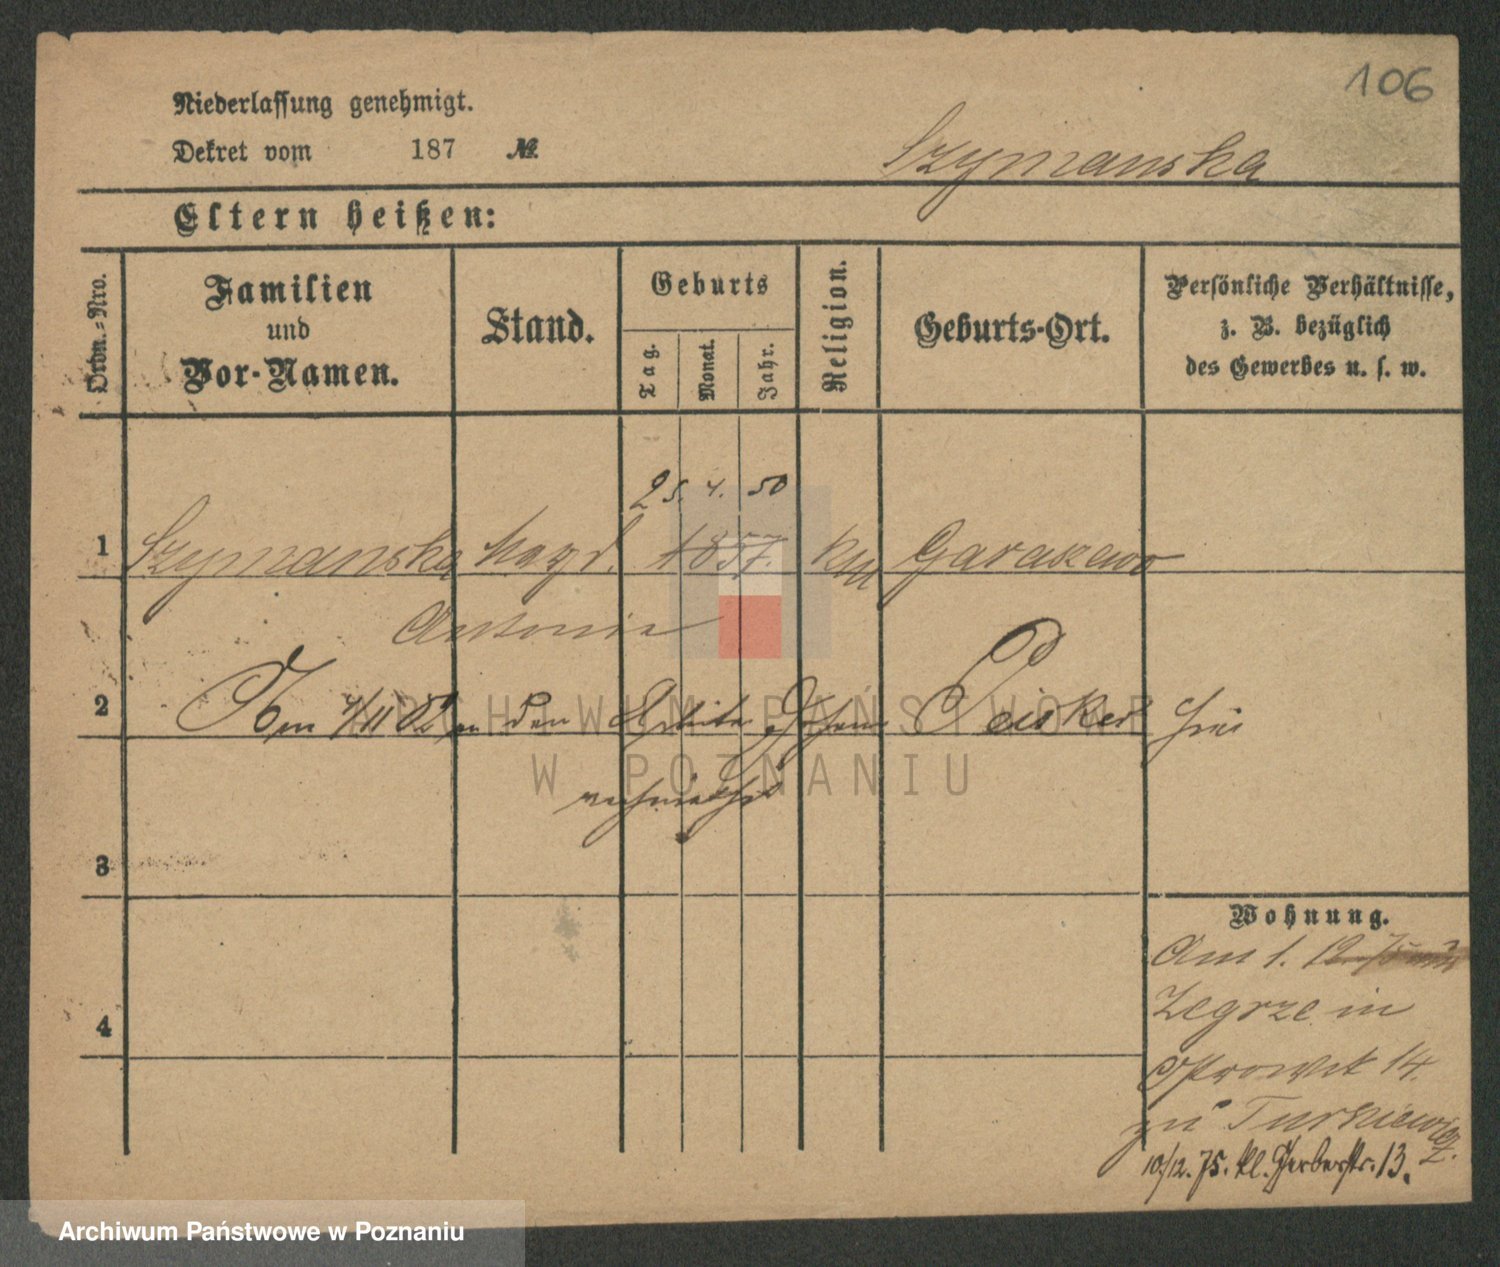 106
Niederlassung genehmigt.
Dekret vom 187 №
Szymanska
Eltern heißen:
Ordn.-Nro.
Familien
und
Vor-Namen.
Stand.
Geburts
Tag.
Monat.
Jahr.
Religion.
Geburts-Ort.
Persönliche Verhältnisse,
z. B. bezüglich
des Gewerbes u. s. w.
25. 4. 50
1 Szymanska Magd. 1857. kath Garaszewo
Antonia
2 Am 4/11 82 an den Arbeiter Johann Peisker hier
verheirathet
3
4
Wohnung.
Am 1. 12. 75 aus
Zegrze in
Ostrowek 14.
zu Turkiewicz.
10/12. 75. kl. Gerberstr. 13.
ARCHIWUM PAŃSTWOWE
W POZNANIU
Archiwum Państwowe w Poznaniu